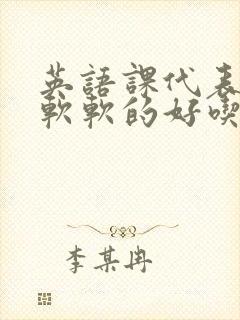 英語課代表
軟軟的好喫
李某冉